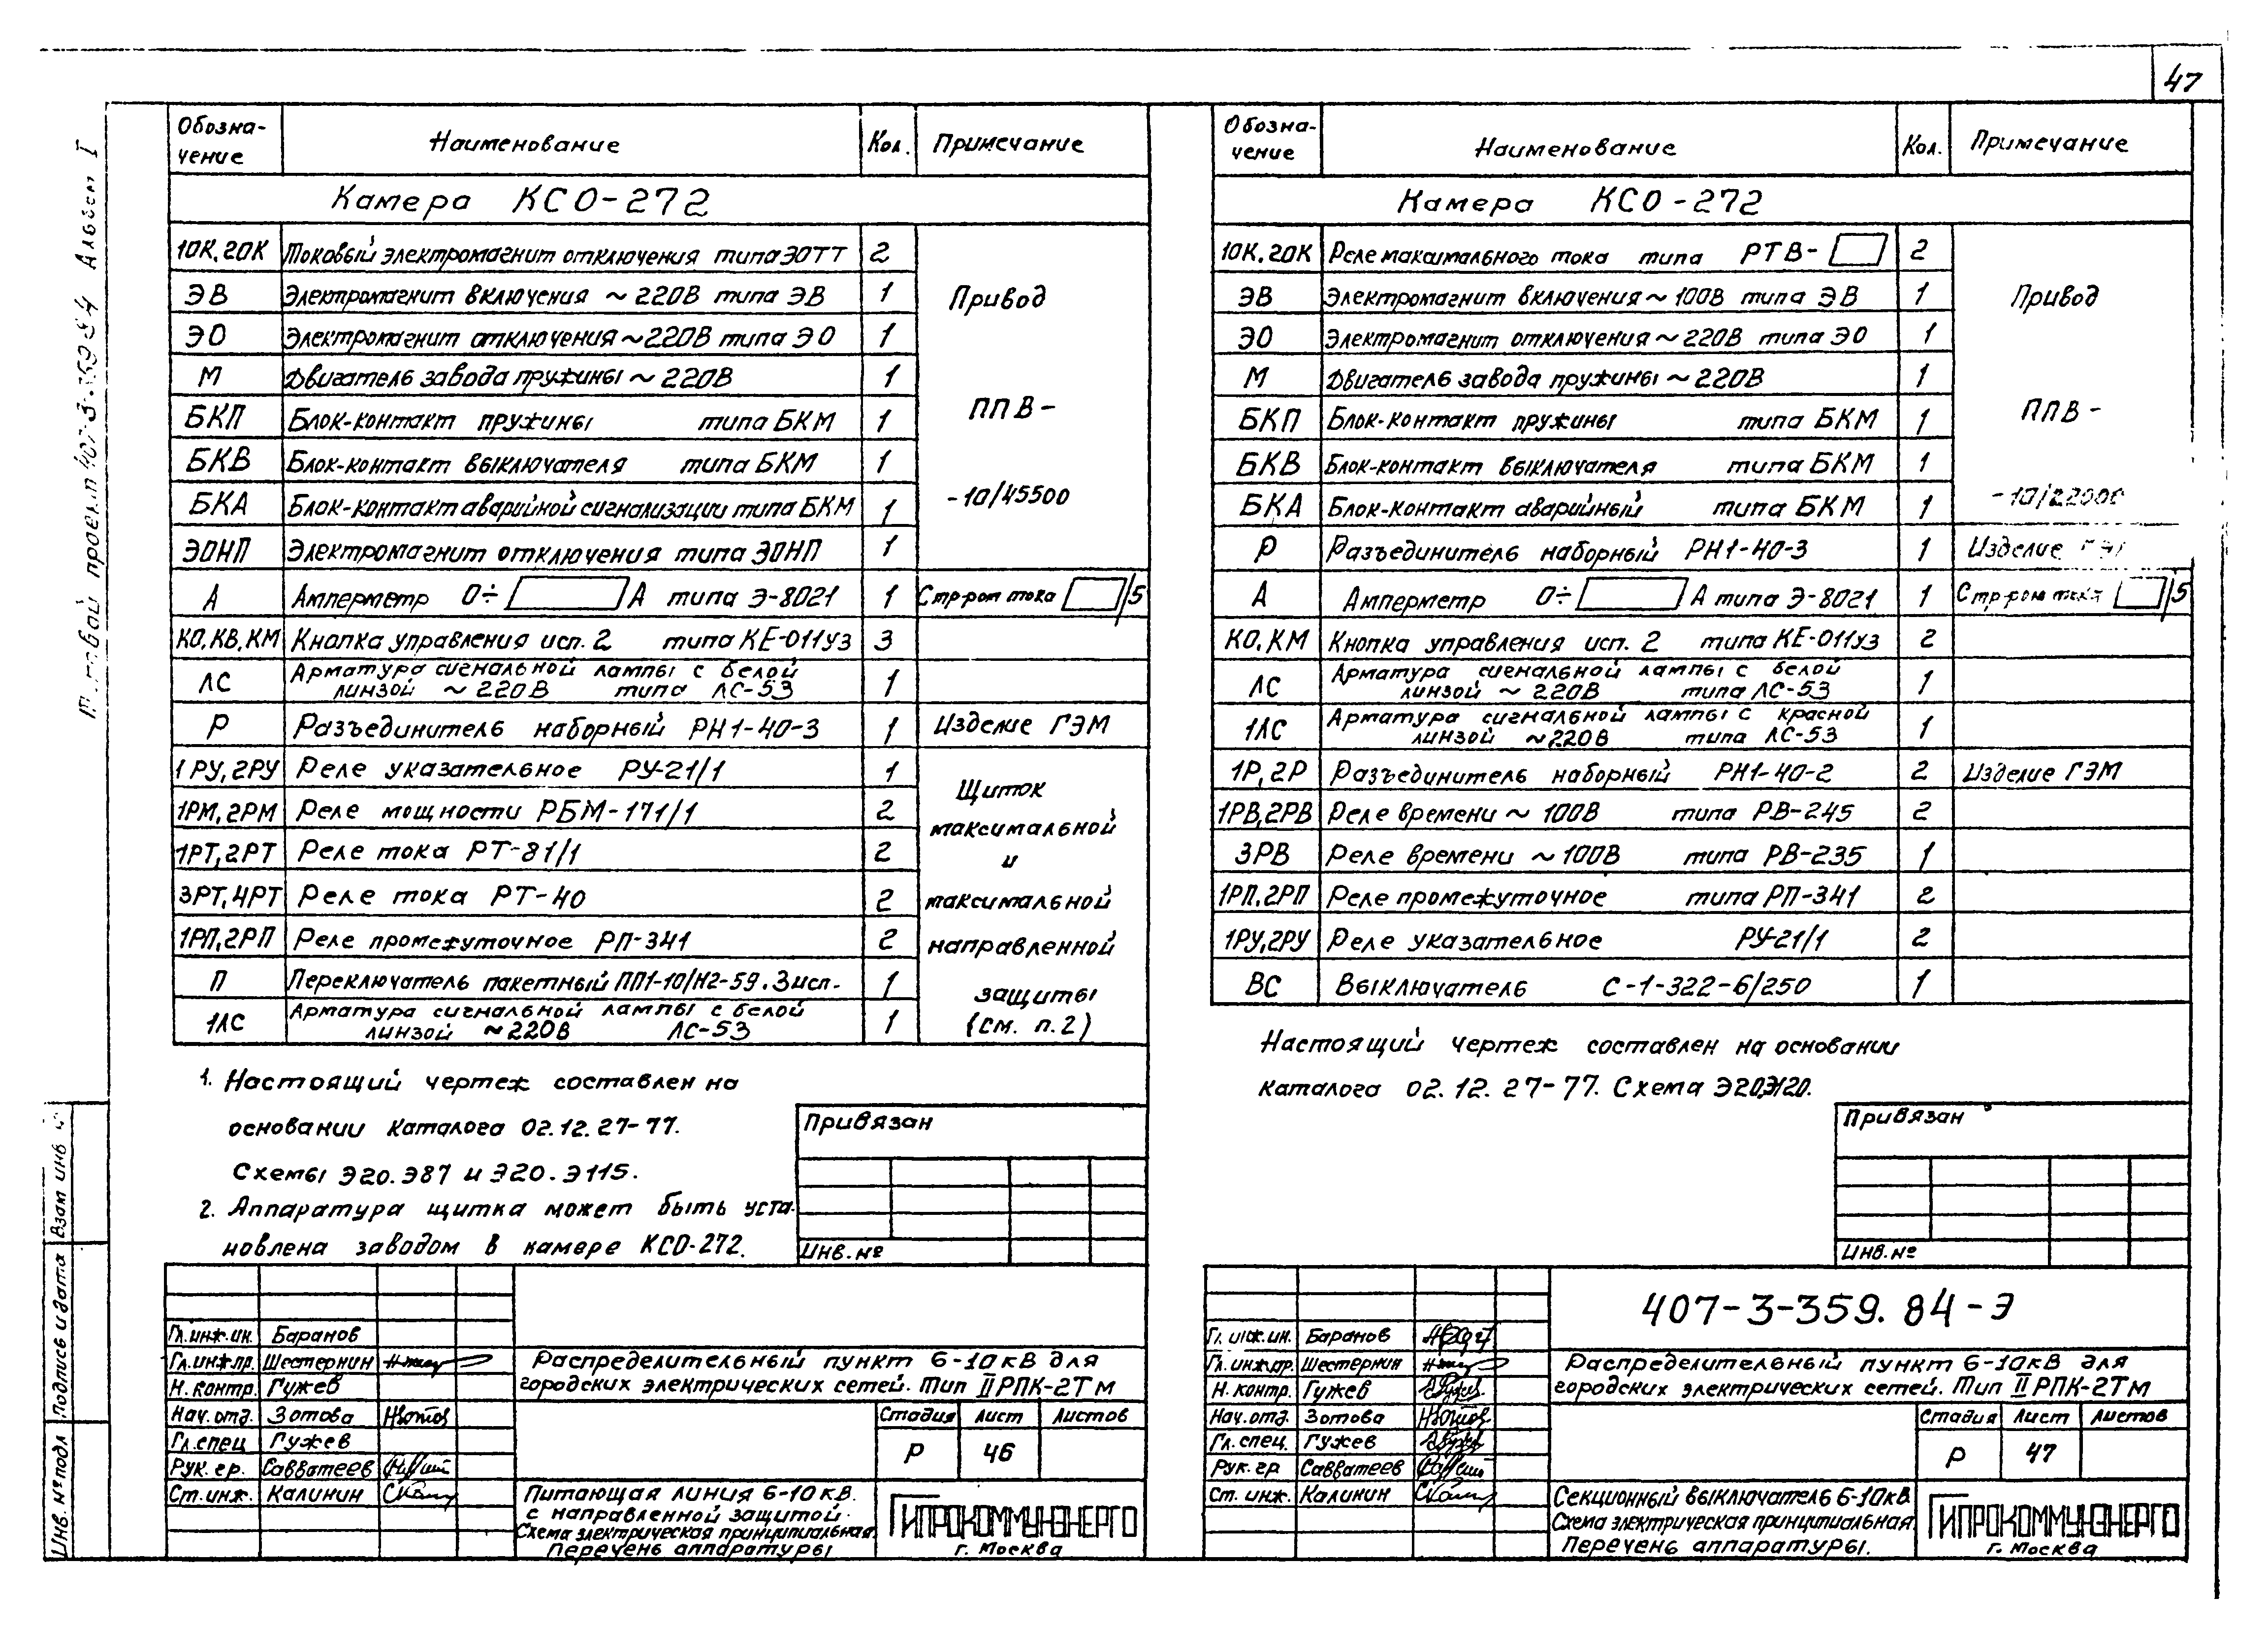 47
Альбом I
Обозна-
чение
Наименование
Кол.
Примечание
Камера КСО-272
1ОК, 2ОК Токовый электромагнит отключения типа ЭОТТ 2
ЭВ Электромагнит включения ~ 220В типа ЭВ 1
ЭО Электромагнит отключения ~220В типа ЭО 1
М Двигатель завода пружины ~ 220В 1
БКП Блок-контакт пружины типа БКМ 1
БКВ Блок-контакт выключателя типа БКМ 1
БКА Блок-контакт аварийной сигнализации типа БКМ 1
ЭОНП Электромагнит отключения типа ЭОНП 1
Привод
ППВ-
-10/45500
А Амперметр 0÷ А типа Э-8021 1 Стр-роп тока /5
КО, КВ, КМ Кнопка управления исп. 2 типа КЕ-011у3 3
ЛС Арматура сигнальной лампы с белой
линзой ~ 220В типа ЛС-53 1
Р Разъединитель наборный РН1-40-3 1 Изделие ГЭМ
1РУ, 2РУ Реле указательное РУ-21/1 1
1РМ, 2РМ Реле мощности РБМ-171/1 2
1РТ, 2РТ Реле тока РТ-81/1 2
3РТ, 4РТ Реле тока РТ-40 2
1РП, 2РП Реле промежуточное РП-341 2
П Переключатель пакетный ПП1-10/Н2-59. 3исп. 1
1ЛС Арматура сигнальной лампы с белой
линзой ~220В ЛС-53 1
Щиток
максимальной
и
максимальной
направленной
защиты
(см. п.2)
1. Настоящий чертеж составлен на
основании каталога 02.12.27-77.
Схемы Э20.Э87 и Э20.Э115.
2. Аппаратура щитка может быть уста-
новлена заводом в камере КСО-272.
Привязан
Инв.№
Гл.инж.ин. Баранов
Гл.инж.пр. Шестернин
Н. контр. Гужев
Нач.отд. Зотова
Гл.спец Гужев
Рук. гр. Савватеев
Ст.инж. Калинин
Распределительный пункт 6-10кВ для
городских электрических сетей. Тип II РПК-2Тм
Стадия Лист Листов
Р 46
Питающая линия 6-10кВ.
с направленной защитой.
Схема электрическая принципиальная.
Перечень аппаратуры
ГИПРОКОММУНЭНЕРГО
г. Москва
Обозна-
чение
Наименование
Кол.
Примечание
Камера КСО-272
1ОК, 2ОК Реле максимального тока типа РТВ- 2
ЭВ Электромагнит включения ~ 100В типа ЭВ 1
ЭО Электромагнит отключения ~ 220В типа ЭО 1
М Двигатель завода пружины ~ 220В 1
БКП Блок-контакт пружины типа БКМ 1
БКВ Блок-контакт выключателя типа БКМ 1
БКА Блок-контакт аварийный типа БКМ 1
Привод
ППВ-
-10/22000
Р Разъединитель наборный РН1-40-3 1 Изделие
А Амперметр 0÷ А типа Э-8021 1 Стр-роп тока /5
КО, КМ Кнопка управления исп. 2 типа КЕ-011у3 2
ЛС Арматура сигнальной лампы с белой
линзой ~ 220В типа ЛС-53 1
1ЛС Арматура сигнальной лампы с красной
линзой ~220В типа ЛС-53 1
1Р, 2Р Разъединитель наборный РН1-40-2 2 Изделие ГЭМ
1РВ, 2РВ Реле времени ~ 100В типа РВ-245 2
3РВ Реле времени ~ 100В типа РВ-235 1
1РП, 2РП Реле промежуточное типа РП-341 2
1РУ, 2РУ Реле указательное РУ-21/1 2
ВС Выключатель С-1-322-6/250 1
Настоящий чертеж составлен на основании
каталога 02.12.27-77. Схема Э20.Э120.
Привязан
Инв.№
407-3-359.84-Э
Гл.инж.ин. Баранов
Гл.инж.пр. Шестернин
Н. контр. Гужев
Нач.отд. Зотова
Гл.спец. Гужев
Рук. гр Савватеев
Ст. инж. Калинин
Распределительный пункт 6-10кВ для
городских электрических сетей. Тип II РПК-2Тм
Стадия Лист Листов
Р 47
Секционный выключатель 6-10кВ
Схема электрическая принципиальная
Перечень аппаратуры.
ГИПРОКОММУНЭНЕРГО
г. Москва
Инв. № подл
Подпись и дата
Взам инв